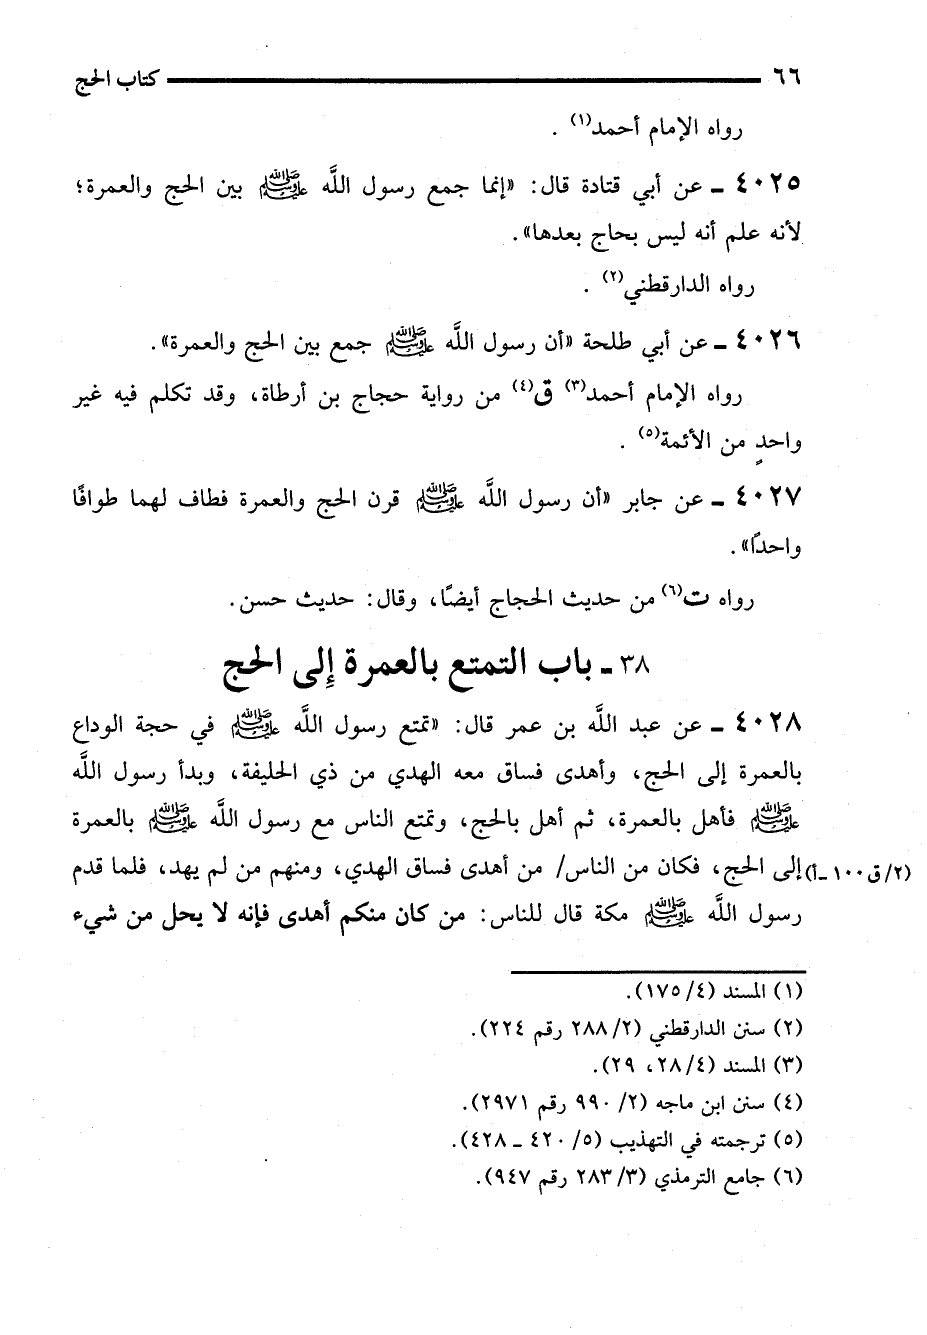 ٦٦ كتاب الحج
رواه الإمام أحمد(١) .
٤٠٢٥ ـ عن أبي قتادة قال: «إنما جمع رسول اللَّه ﷺ بين الحج والعمرة؛
لأنه علم أنه ليس بحاج بعدها».
رواه الدارقطني(٢) .
٤٠٢٦ ـ عن أبي طلحة «أن رسول اللَّه ﷺ جمع بين الحج والعمرة».
رواه الإمام أحمد(٣) ق(٤) من رواية حجاج بن أرطاة، وقد تكلم فيه غير
واحدٍ من الأئمة(٥) .
٤٠٢٧ ـ عن جابر «أن رسول اللَّه ﷺ قرن الحج والعمرة فطاف لهما طوافًا
واحدًا».
رواه ت(٦) من حديث الحجاج أيضًا، وقال: حديث حسن.
٣٨ ـ باب التمتع بالعمرة إِلى الحج
٤٠٢٨ ـ عن عبد اللَّه بن عمر قال: «تمتع رسول اللَّه ﷺ في حجة الوداع
بالعمرة إلى الحج، وأهدى فساق معه الهدي من ذي الحليفة، وبدأ رسول اللَّه
ﷺ فأهل بالعمرة، ثم أهل بالحج، وتمتع الناس مع رسول اللَّه ﷺ بالعمرة
(٢/ق١٠٠ـأ) إلى الحج، فكان من الناس/ من أهدى فساق الهدي، ومنهم من لم يهد، فلما قدم
رسول اللَّه ﷺ مكة قال للناس: من كان منكم أهدى فإنه لا يحل من شيء
(١) المسند (٤/ ١٧٥).
(٢) سنن الدارقطني (٢/ ٢٨٨ رقم ٢٢٤).
(٣) المسند (٤/ ٢٨، ٢٩).
(٤) سنن ابن ماجه (٢/ ٩٩٠ رقم ٢٩٧١).
(٥) ترجمته في التهذيب (٥/ ٤٢٠ ـ ٤٢٨).
(٦) جامع الترمذي (٣/ ٢٨٣ رقم ٩٤٧).